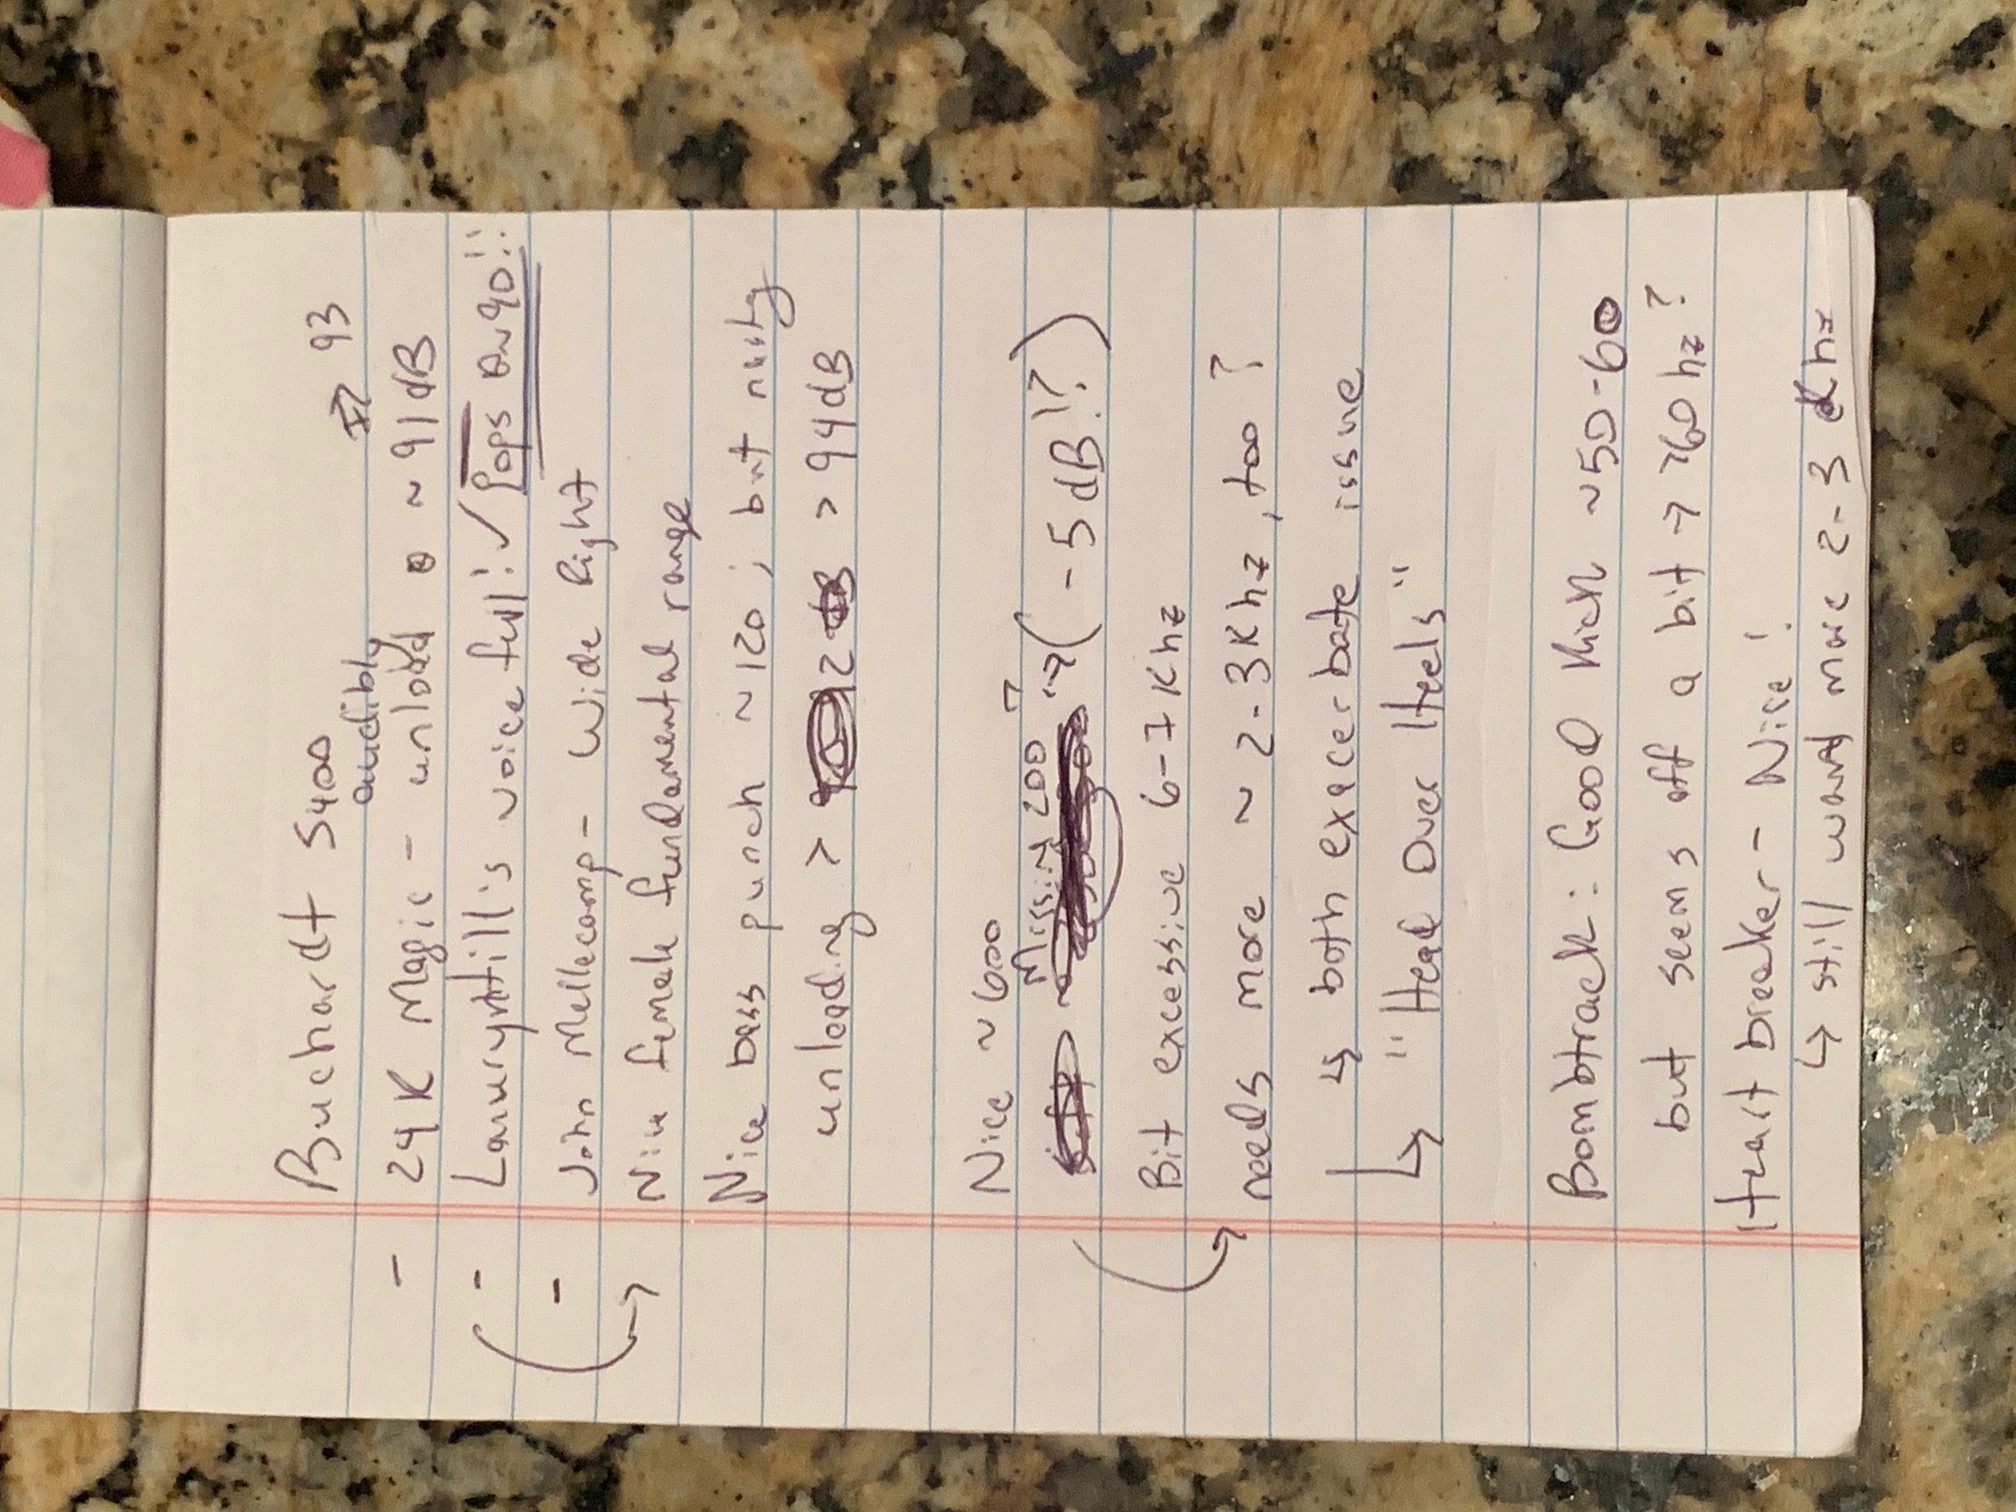 Buchardt S400
audibly → 93
- 24K Magic - unload @ ~91dB
- LauurynHill's voice full! ✓ Pops @~90!!
- John Mellecamp - Wide Right
→ Nice female fundamental range
Nice bass punch ~120; but nasty
unloading > 92 > 94dB
Nice ~600
Missing 200 ? → (-5dB!?)
Bit excessive 6-7Khz
→ needs more ~2-3Khz, too?
↳ both exacerbate issue
↳ "Head Over Heels"
Bombtrack: Good Kick ~50-60
but seems off a bit → >60hz?
Heartbreaker - Nice!
↳ still want more 2-3 Khz